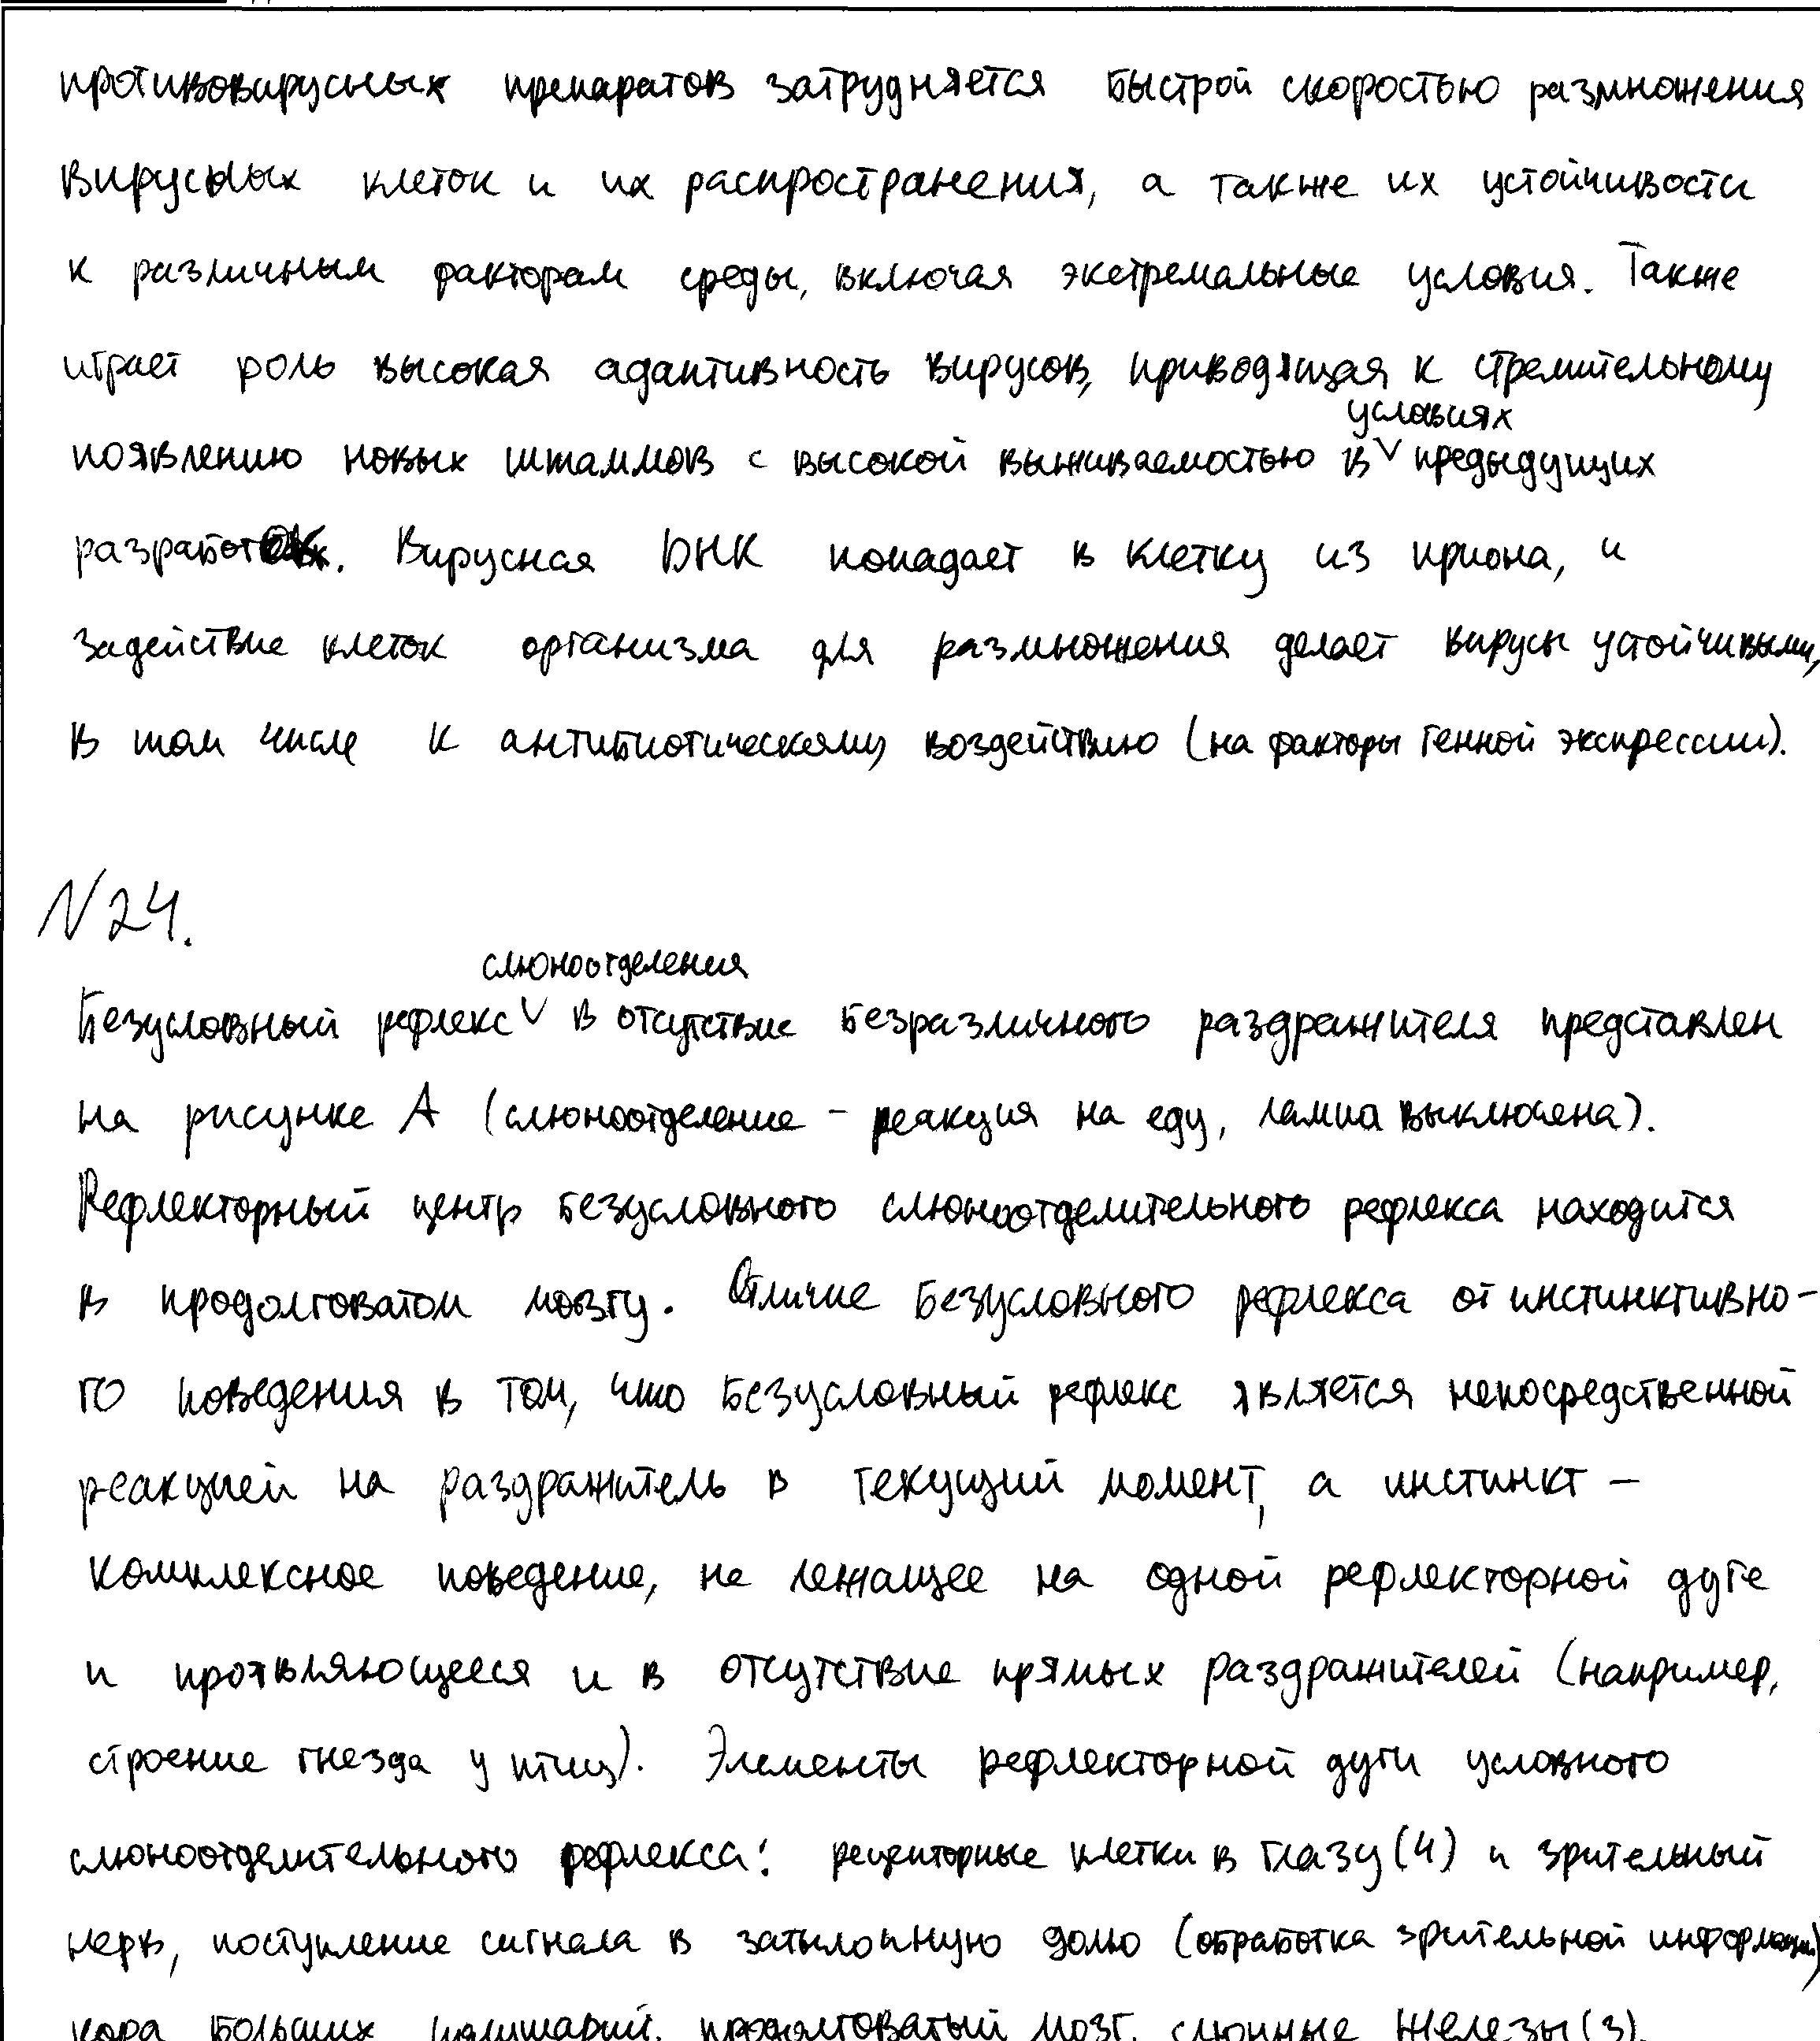 противовирусных препаратов затрудняется быстрой скоростью размножения
вирусных клеток и их распространения, а также их устойчивости
к различным факторам среды, включая экстремальные условия. Также
играет роль высокая адаптивность вирусов, приводящая к стремительному
условиях
появлению новых штаммов с высокой выживаемостью в ˅ предыдущих
разработок. Вирусная ДНК попадает в клетку из приона, и
задействие клеток организма для размножения делает вирусы устойчивыми,
в том числе к антибиотическому воздействию (на факторы генной экспрессии).
N24.
слюноотделения
Безусловный рефлекс ˅ в отсутствие безразличного раздражителя представлен
на рисунке А (слюноотделение - реакция на еду, лампа выключена).
Рефлекторный центр безусловного слюноотделительного рефлекса находится
в продолговатом мозгу. Отличие безусловного рефлекса от инстинктивно-
го поведения в том, что безусловный рефлекс является непосредственной
реакцией на раздражитель в текущий момент, а инстинкт –
комплексное поведение, не лежащее на одной рефлекторной дуге
и проявляющееся и в отсутствие прямых раздражителей (например,
строение гнезда у птиц). Элементы рефлекторной дуги условного
слюноотделительного рефлекса: рецепторные клетки в глазу (4) и зрительный
нерв, поступление сигнала в затылочную долю (обработка зрительной информации)
кора больших полушарий, продолговатый мозг, слюнные железы (3).